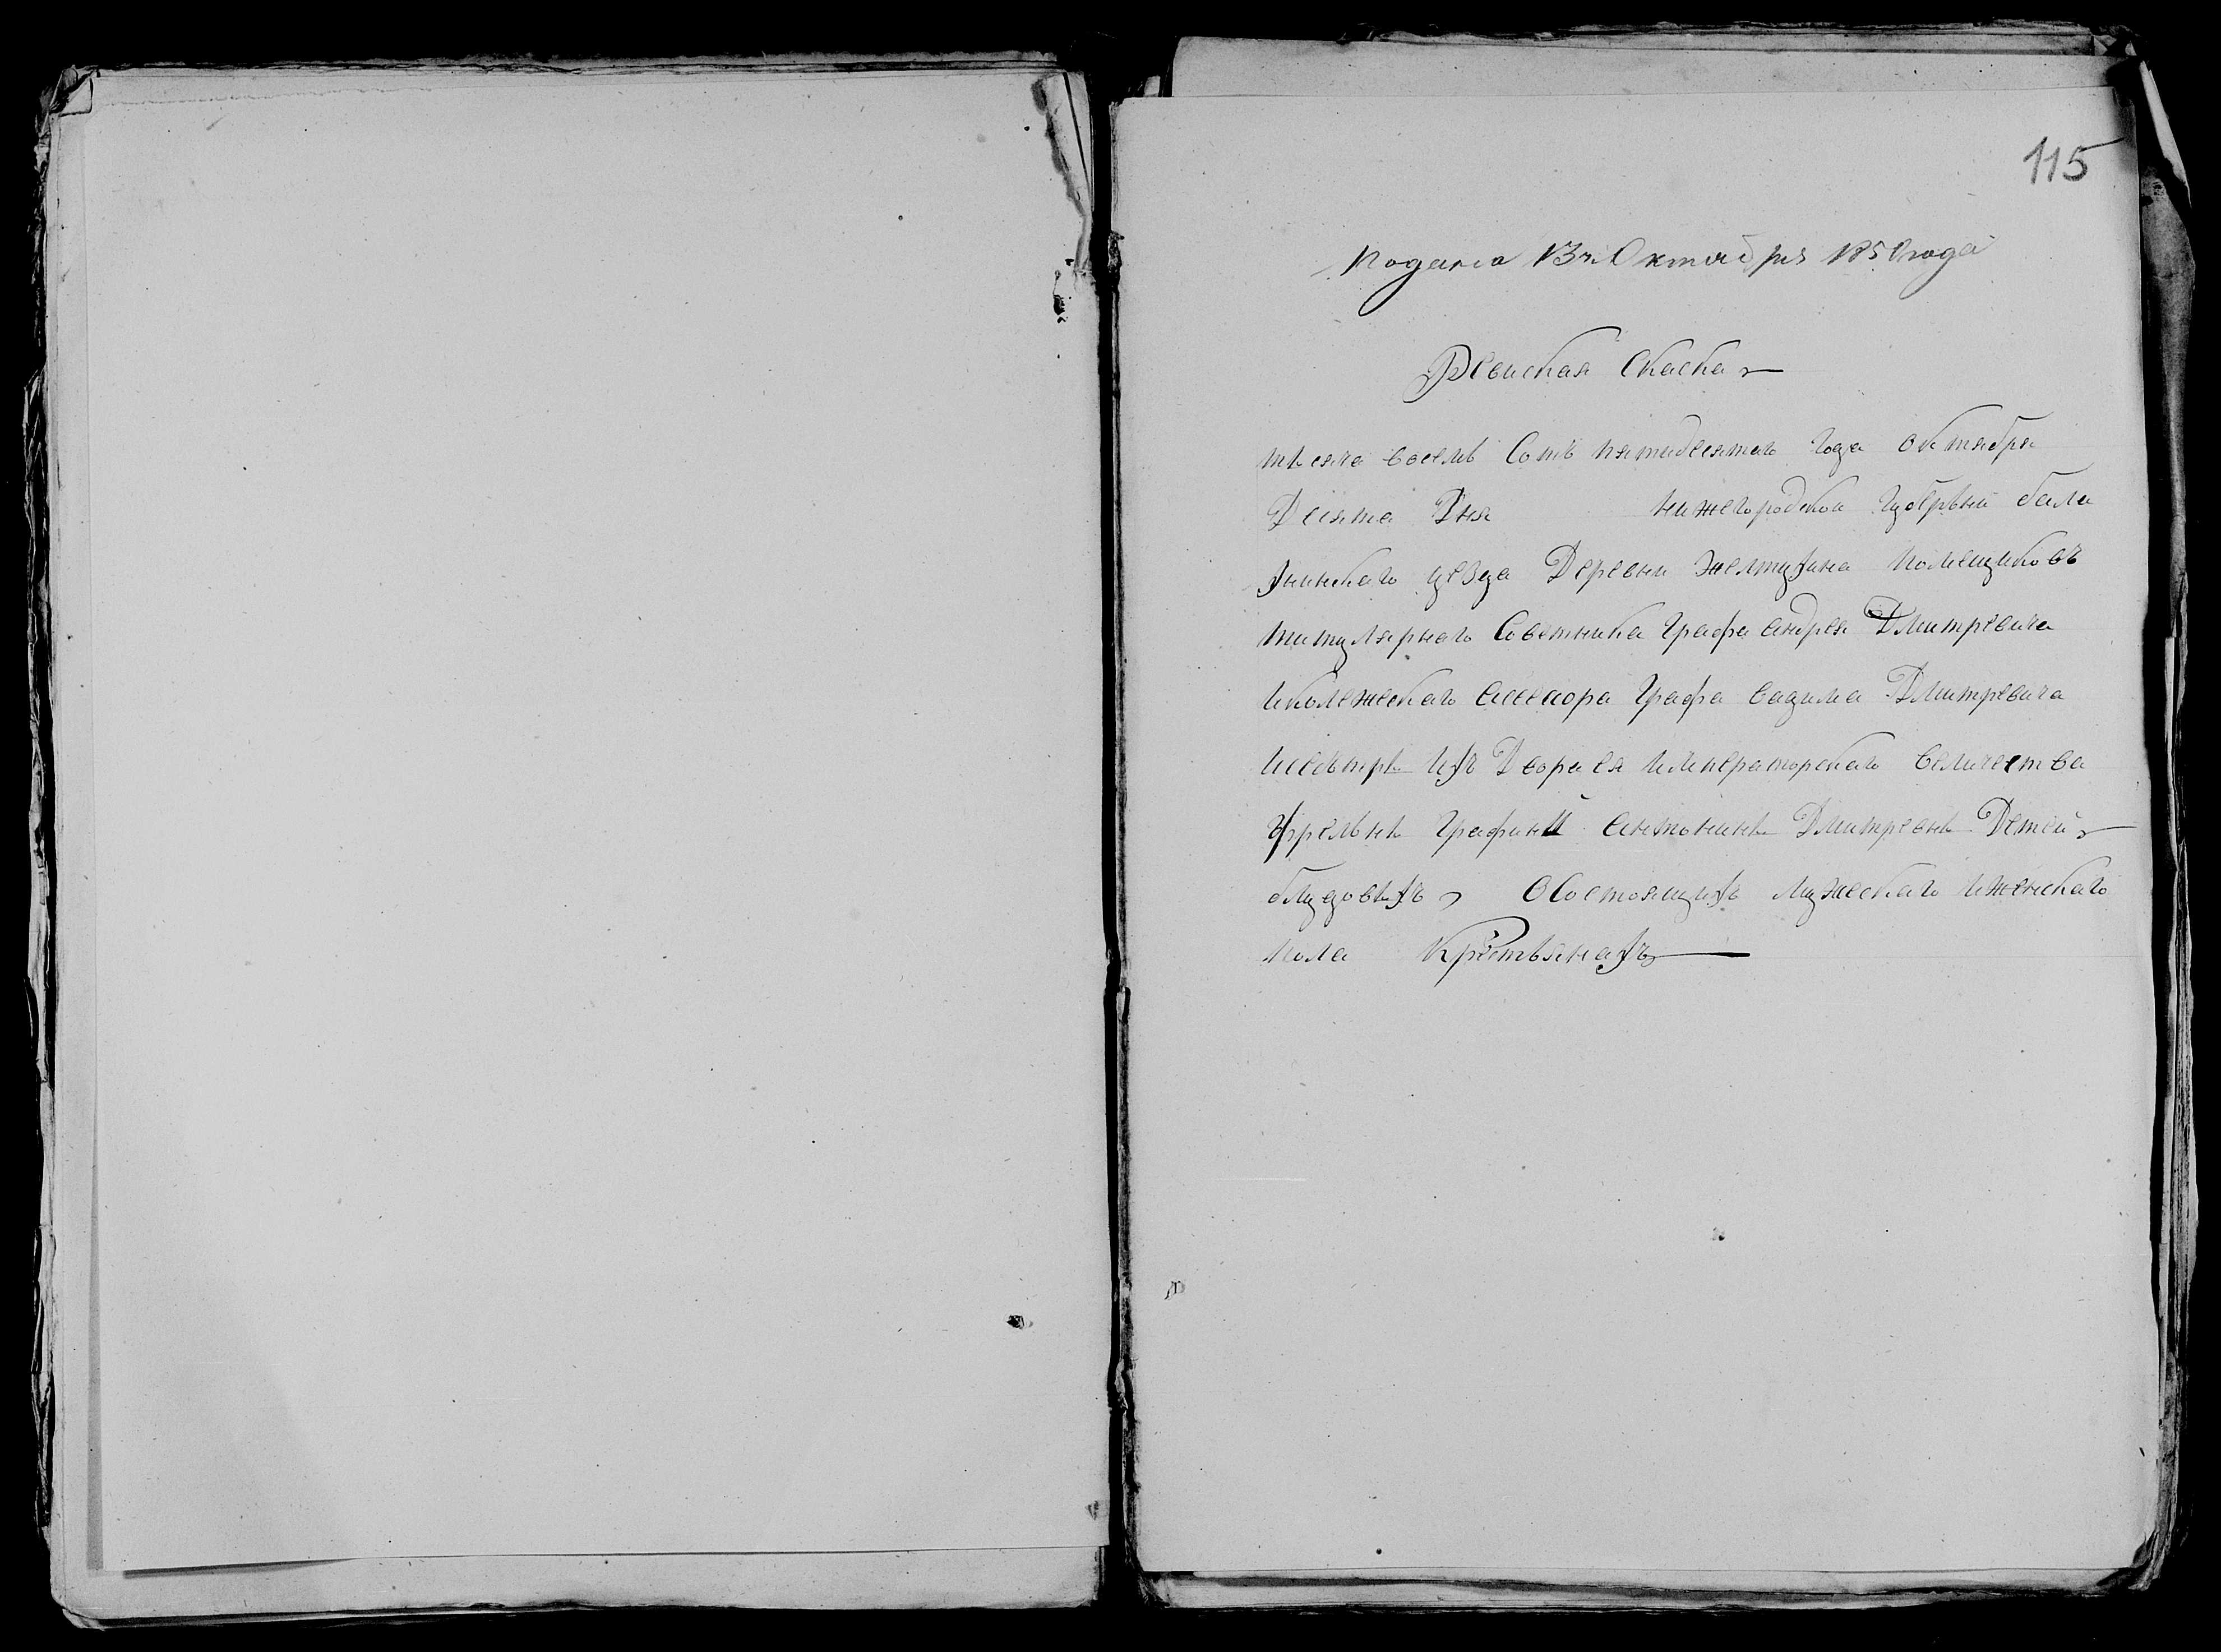 115
Подана 13 ч. Октября 1850 года
Ревиская Скаска
тысяча восемь Сотъ пятидесятаго Года октября
Десята Дня Нижегородской Губерьнии бала
хнинскаго уезда Деревни Желтухина помещиковъ
титулярнаго Советника Графа андрея Дмитревича
иколежскаго асесора Графа вадима Дмитревича
исестры ихъ Двора ея императорскаго величества
Фрельны Графини антонины Дмитревны Детей
блудовыхъ, ОСостоящихъ мужескаго иженскаго
пола Крестьянахъ